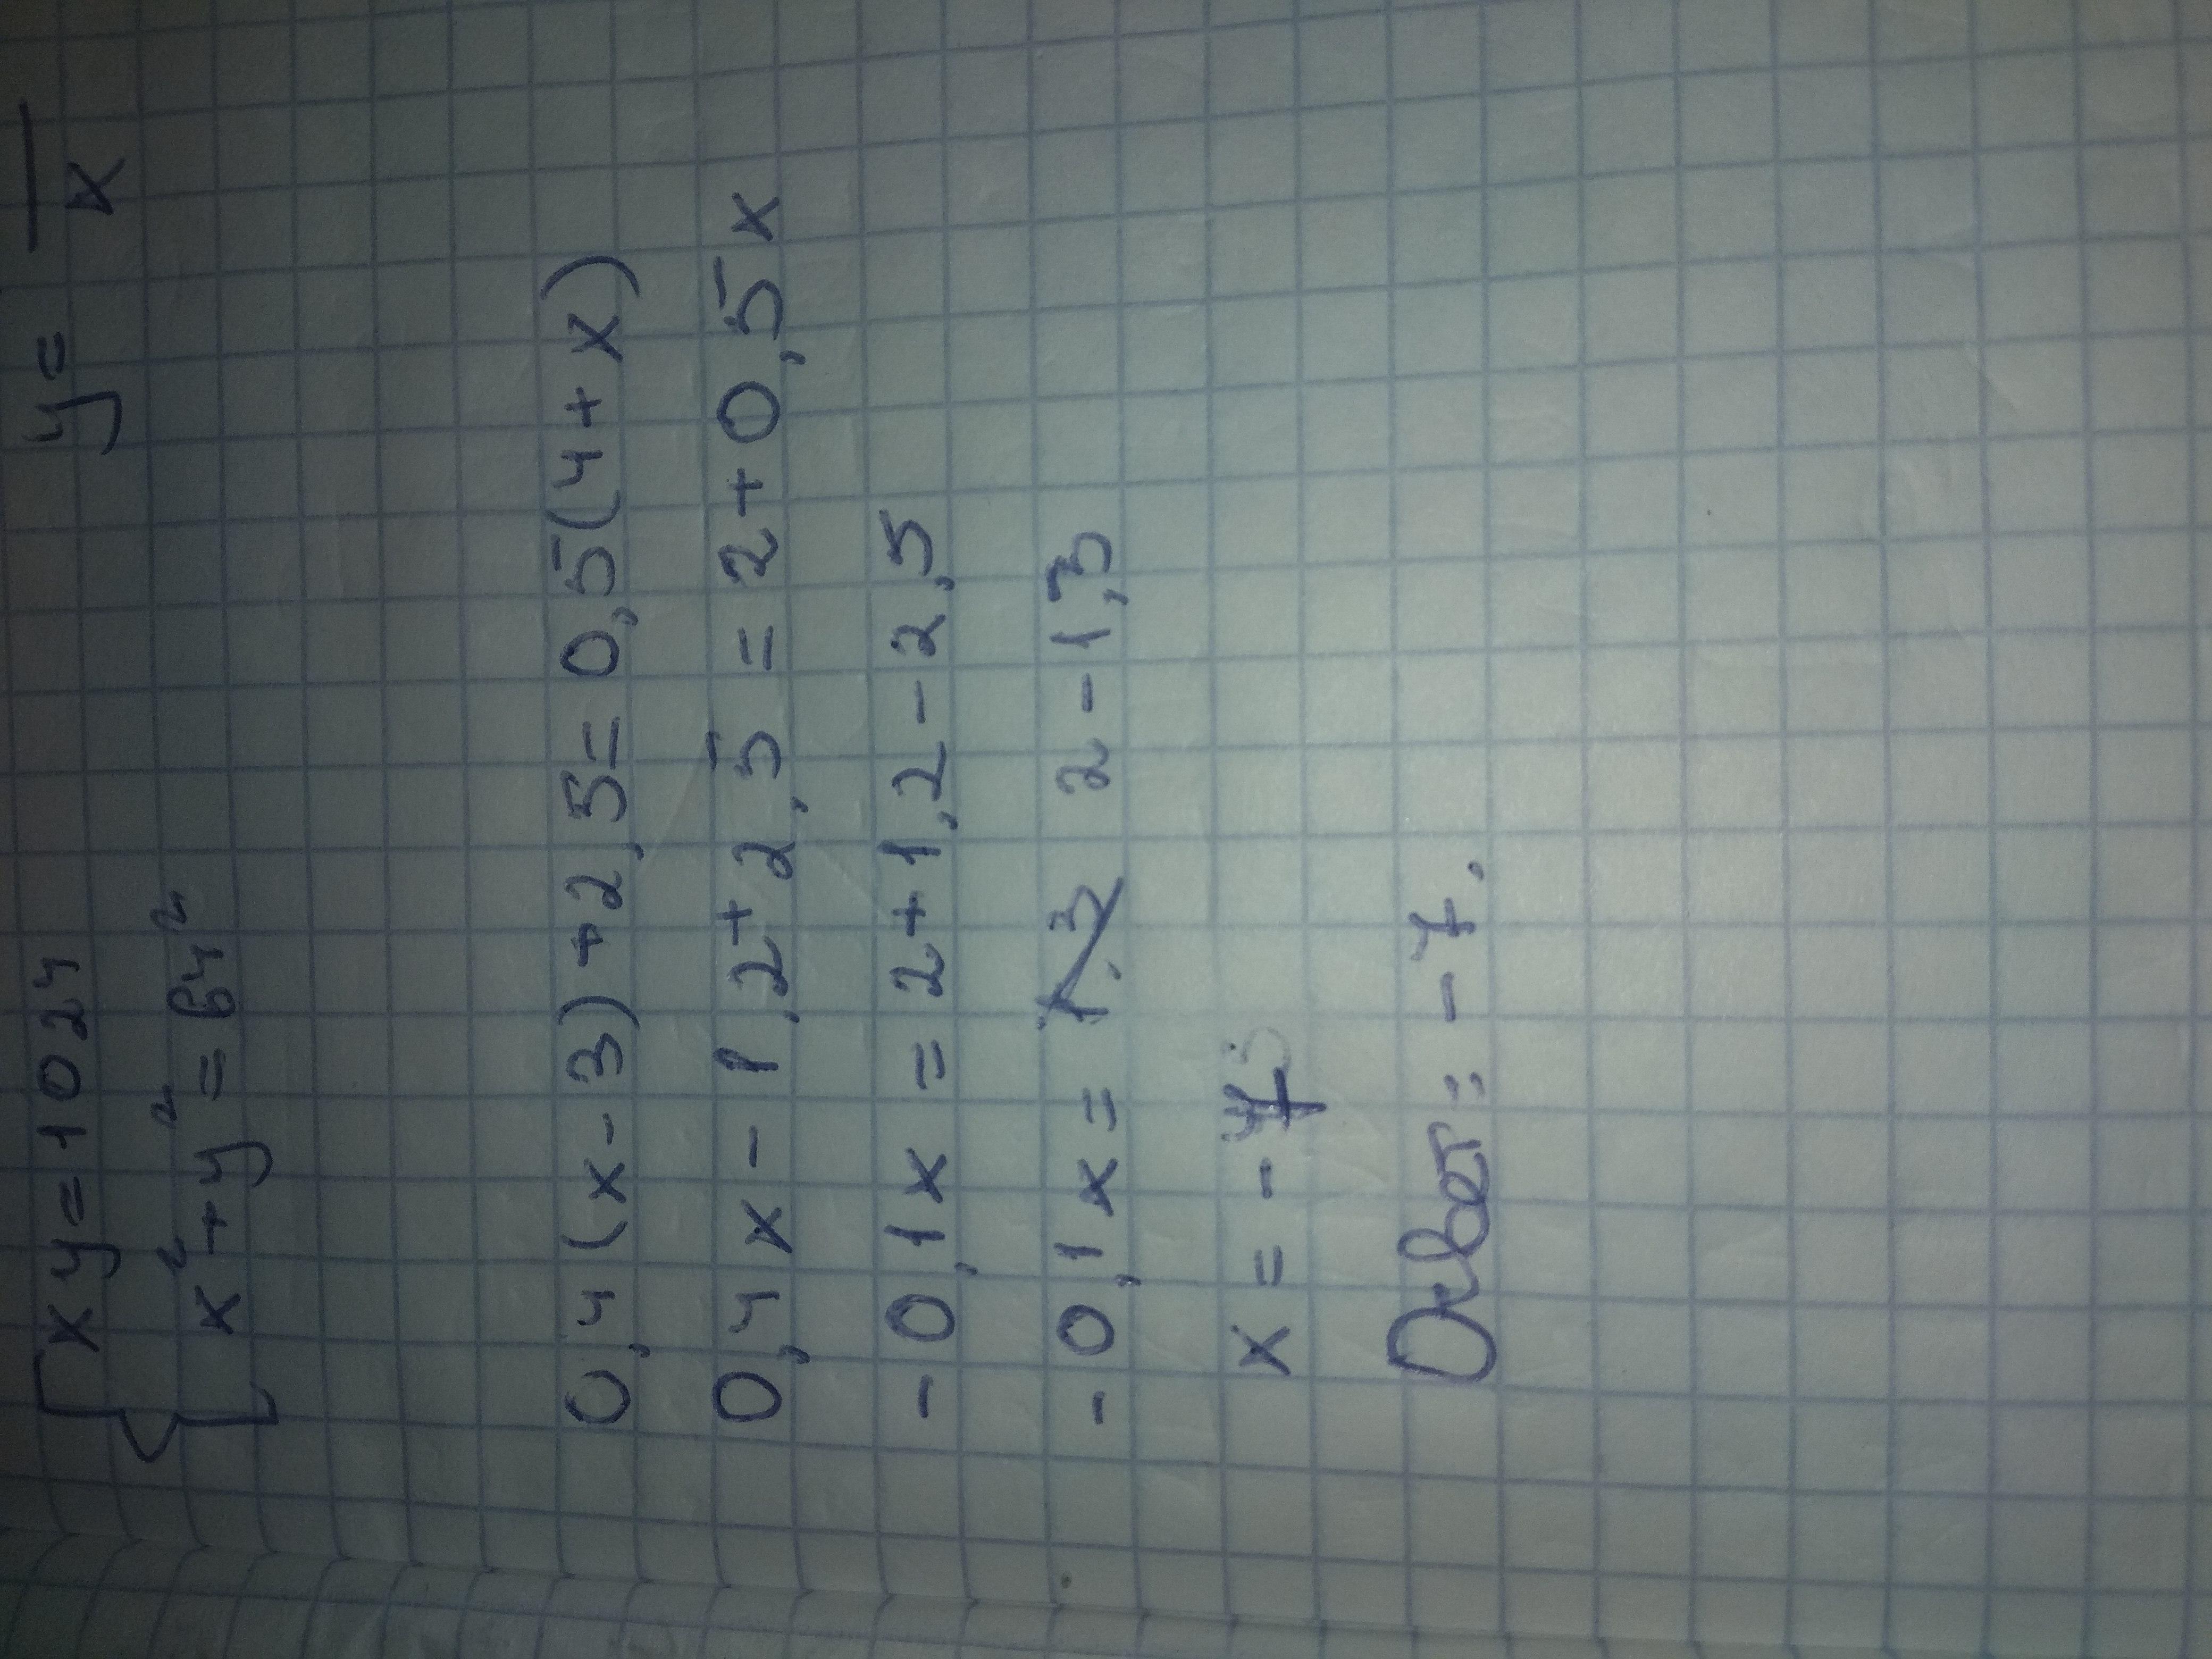 { xy = 1024 y = — x
x² + y² = 64²
0,4(x-3)+2,5=0,5(4+x)
0,4x - 1,2+2,5 = 2+0,5x
-0,1x = 2+1,2-2,5
-0,1x = 2-1,3
x = -7
Ответ: -7.